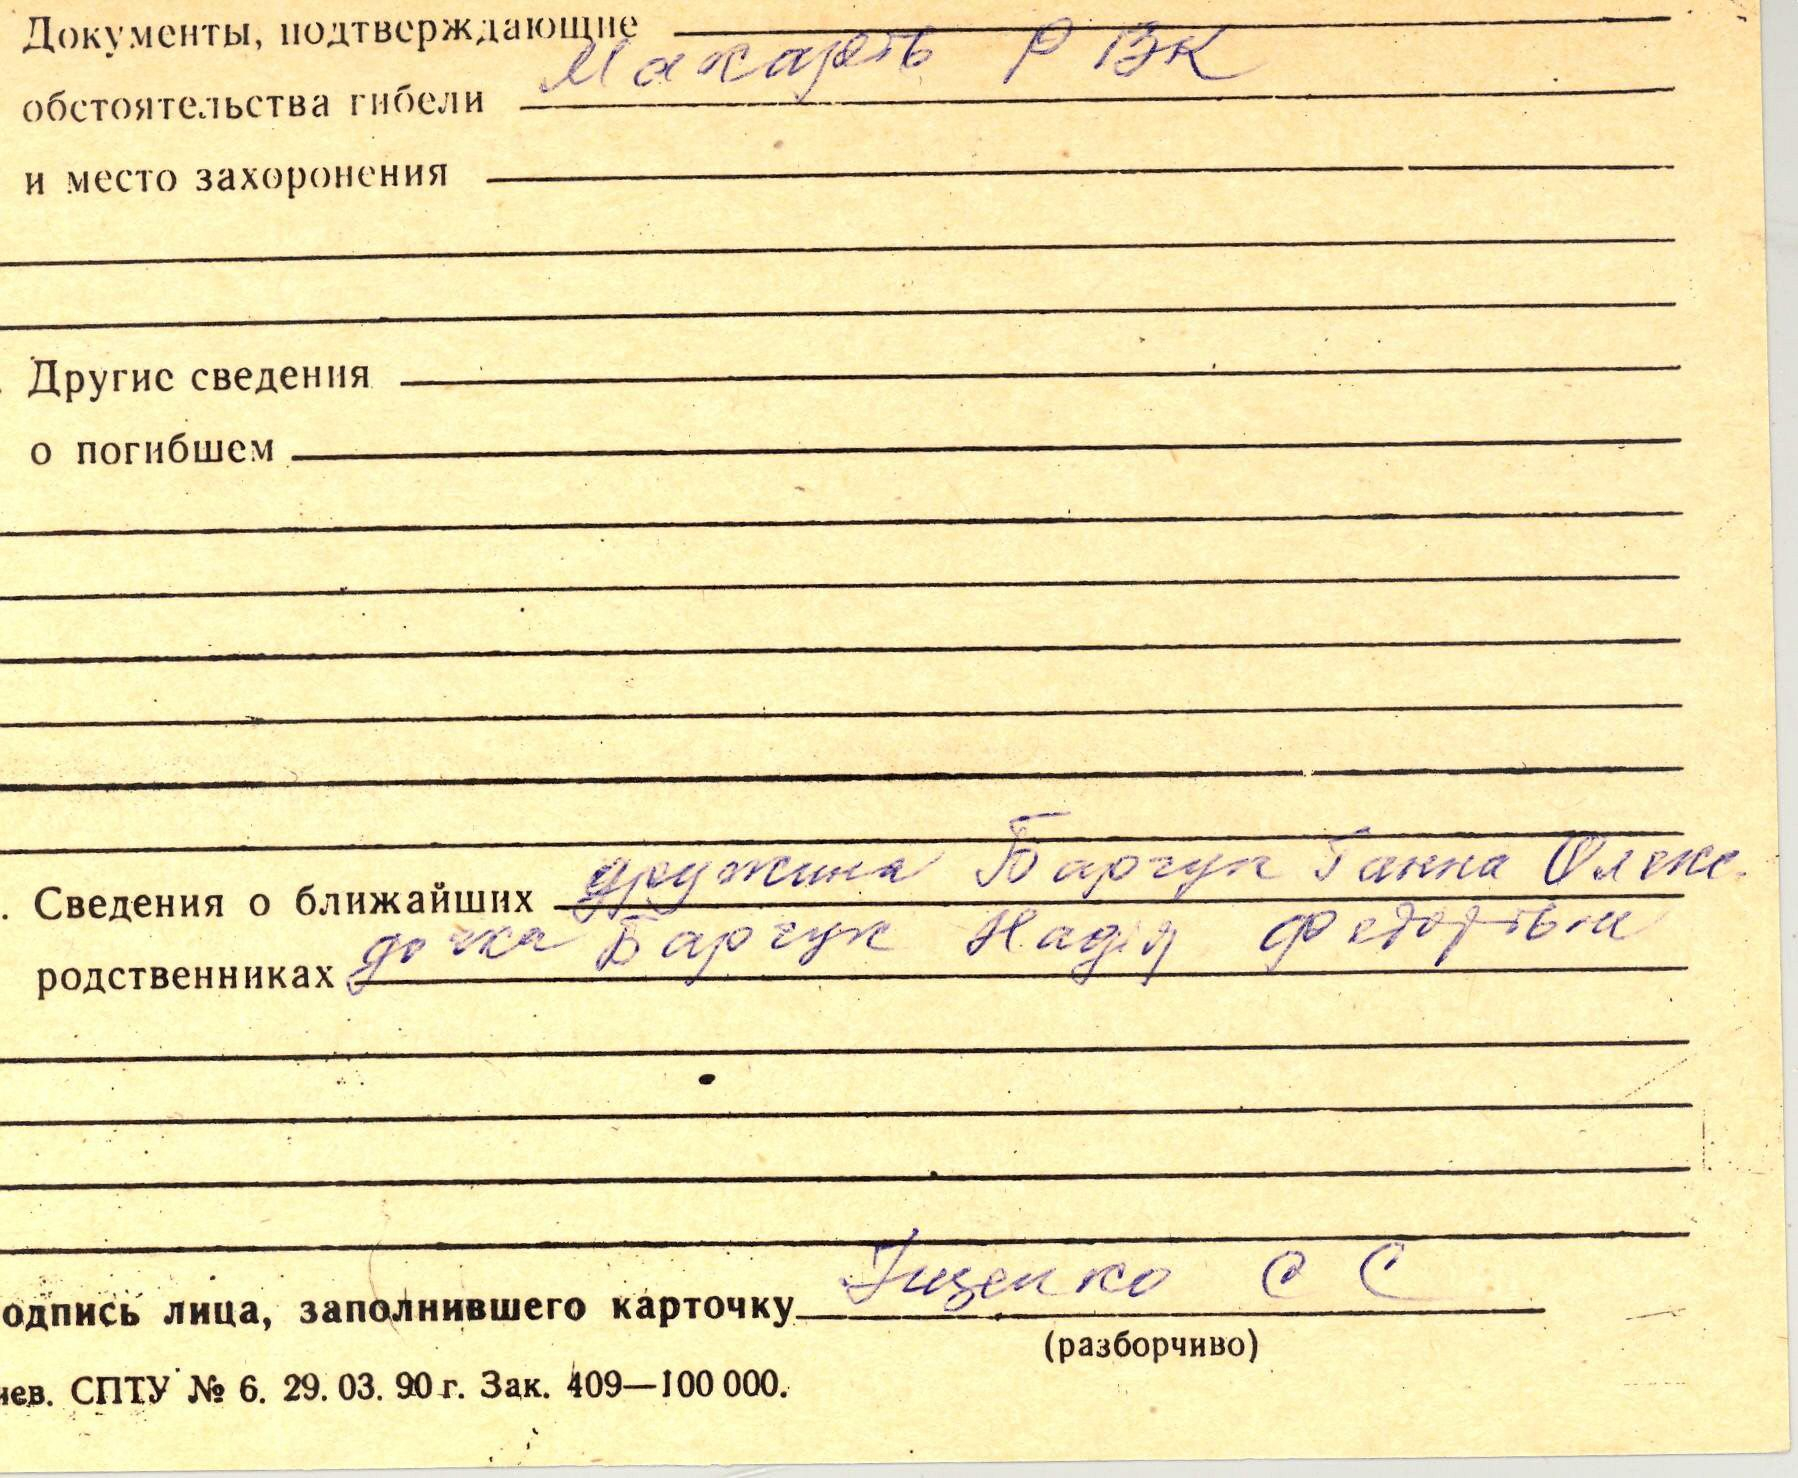 Документы, подтверждающие
обстоятельства гибели Макарів РВК
и место захоронения
Другие сведения
о погибшем
Сведения о ближайших дружина Барчук Ганна Олекс.
родственниках дочка Барчук Надія Федорівна
одпись лица, заполнившего карточку Іщенко С С
(разборчиво)
чев. СПТУ № 6. 29. 03. 90 г. Зак. 409—100 000.